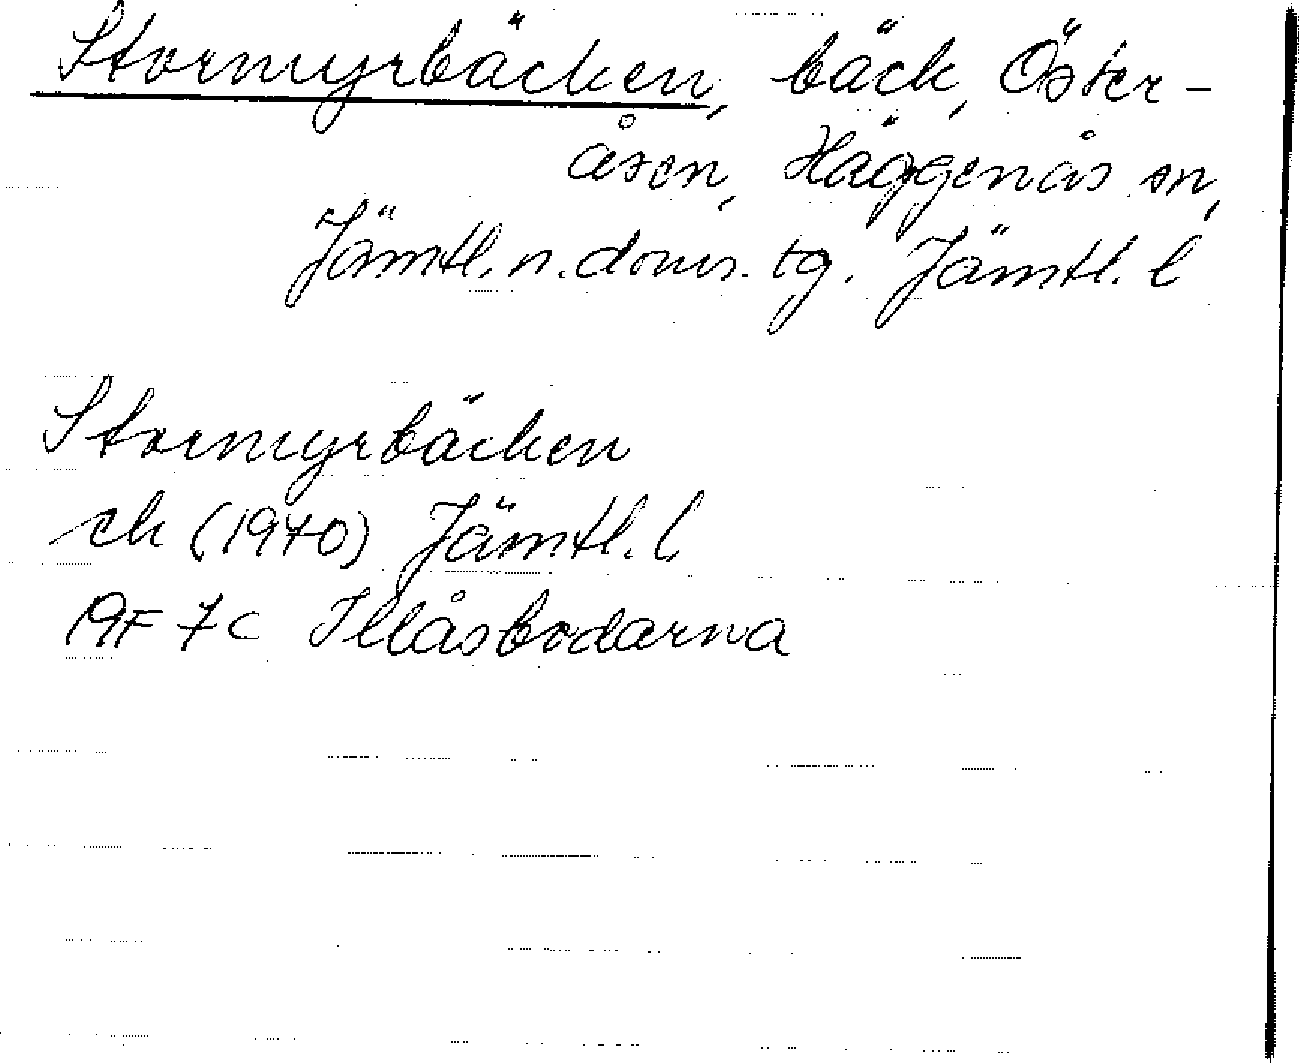 Stormyrbäcken, bäck, Öster-
åsen, Häggenås sn,
Jämtl. n. doms. tg. Jämtl. l
Stormyrbäcken
ek (1970) Jämtl. l
19F 7c Illåsbodarna